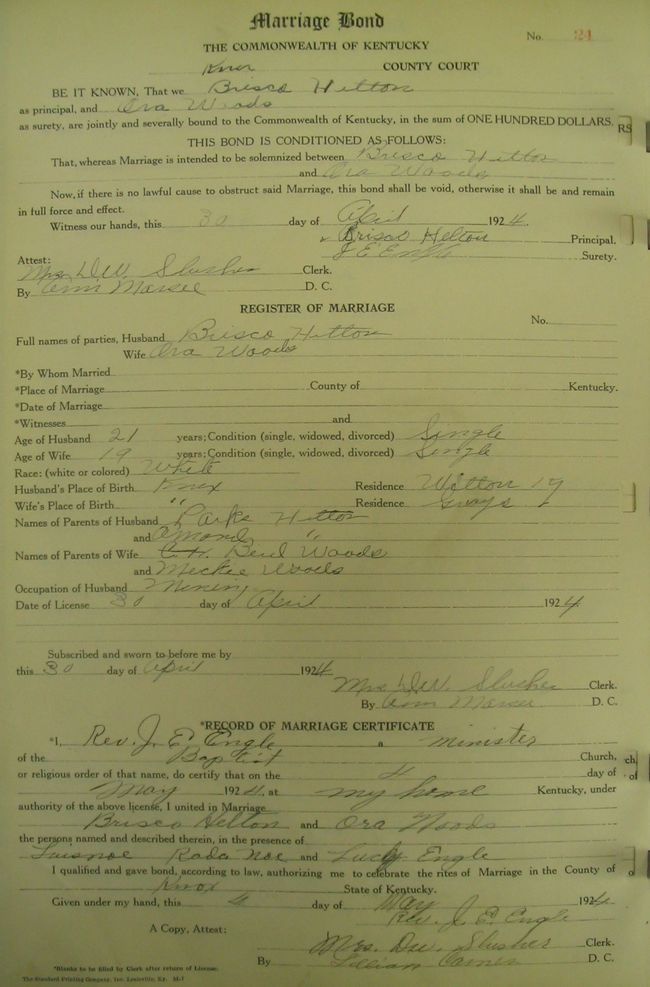 Marriage Bond
No. 21
THE COMMONWEALTH OF KENTUCKY
Knox COUNTY COURT
BE IT KNOWN, That we Brisco Helton
as principal, and Ora Woods
as surety, are jointly and severally bound to the Commonwealth of Kentucky, in the sum of ONE HUNDRED DOLLARS. RS
THIS BOND IS CONDITIONED AS FOLLOWS:
That, whereas Marriage is intended to be solemnized between Brisco Helton
and Ora Woods
Now, if there is no lawful cause to obstruct said Marriage, this bond shall be void, otherwise it shall be and remain
in full force and effect.
Witness our hands, this 30 day of April 1924.
Brisco Helton Principal.
J E Engle Surety.
Attest:
Mrs. D.W. Slusher Clerk.
By Ann Marsee D. C.
REGISTER OF MARRIAGE
No.
Full names of parties, Husband Brisco Helton
Wife Ora Woods
*By Whom Married
*Place of Marriage County of Kentucky.
*Date of Marriage
*Witnesses and
Age of Husband 21 years; Condition (single, widowed, divorced) Single
Age of Wife 19 years; Condition (single, widowed, divorced) Single
Race: (white or colored) White
Husband's Place of Birth Knox Residence Wilton Ky
Wife's Place of Birth " Residence Grays
Names of Parents of Husband Helton
and "
Names of Parents of Wife Woods
and Woods
Occupation of Husband Mining
Date of License 30 day of April 1924
Subscribed and sworn to before me by
this 30 day of April 1924
Mrs. D.W. Slusher Clerk.
By Ann Marsee D. C.
*RECORD OF MARRIAGE CERTIFICATE
*I, Rev. J. E. Engle a minister
of the Baptist Church, ch,
or religious order of that name, do certify that on the 4 day of of
May 1924, at my home Kentucky, under
authority of the above license, I united in Marriage
Brisco Helton and Ora Woods
the persons named and described therein, in the presence of
Noe and Lucy Engle
I qualified and gave bond, according to law, authorizing me to celebrate the rites of Marriage in the County of o
Knox State of Kentucky.
Given under my hand, this 4 day of May 1924
Rev. J. E. Engle
A Copy, Attest:
Mrs. D.W. Slusher Clerk.
By Lillian D. C.
*Blanks to be filled by Clerk after return of License.
The Standard Printing Company, Inc. Louisville, Ky. M-7